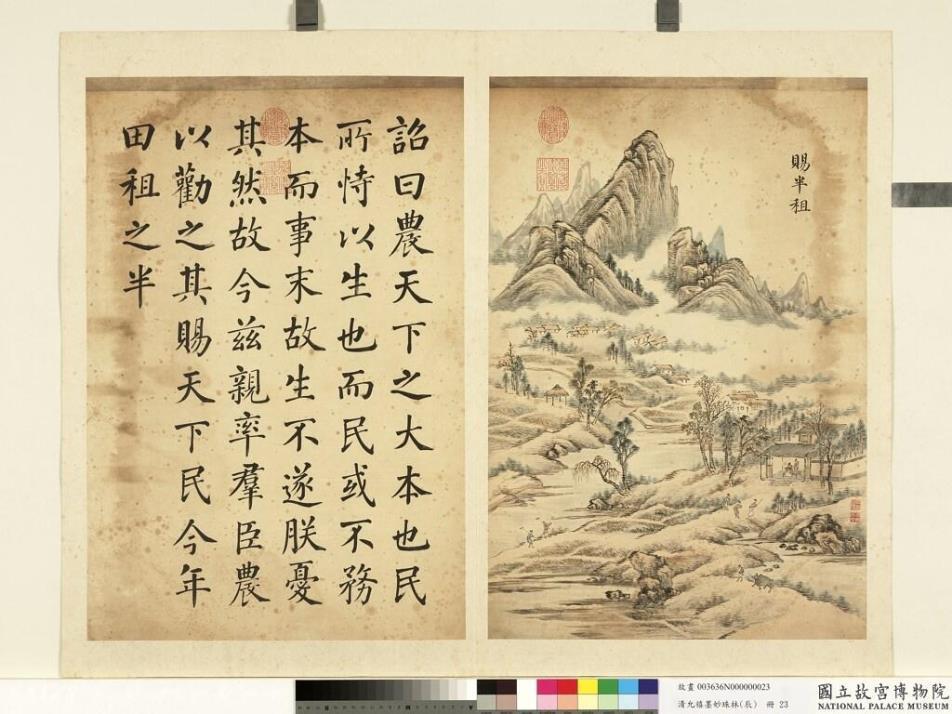 賜半租
詔曰農天下之大本也民
所恃以生也而民或不務
本而事末故生不遂朕憂
其然故今茲親率羣臣農
以勸之其賜天下民今年
田租之半
故畫 003636N000000023
清允禧墨妙珠林(辰) 冊 23
國立故宮博物院
NATIONAL PALACE MUSEUM